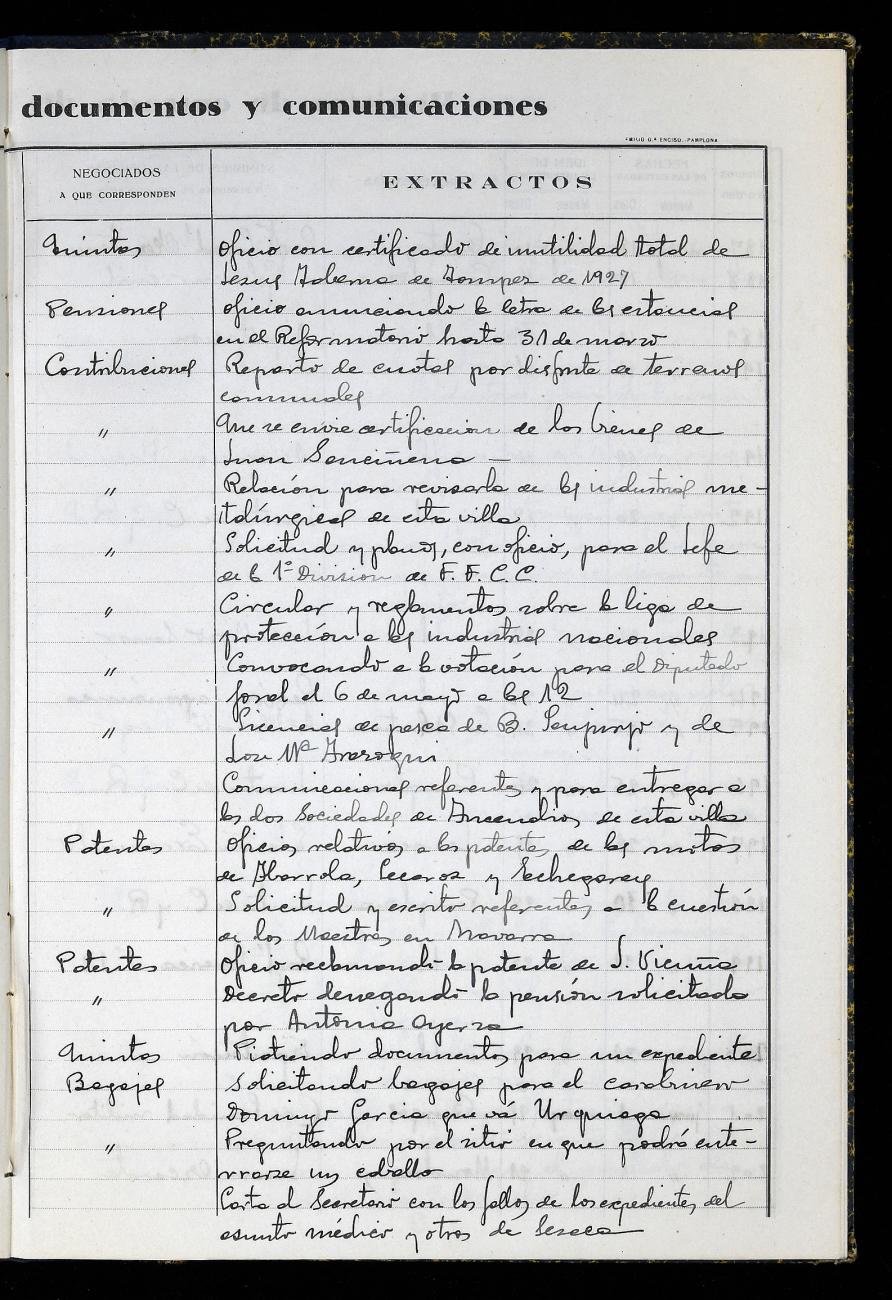 documentos y comunicaciones
EMILIO G.ª ENCISO.-PAMPLONA
NEGOCIADOS
A QUE CORRESPONDEN
EXTRACTOS
Quintas Oficio con certificado de inutilidad total de
Jesus de 1927
Pensiones Oficio anunciando la letra de las estancias
en el Reformatorio hasta 31 de marzo
Contribuciones Reparto de cuotas por disfrute de terrenos
comunales
" Que se envie certificacion de los bienes de
Juan Senciñena —
" Relación para revisarla de las industrias me-
talúrgicas de esta villa
" Solicitud y planos, con oficio, para el Jefe
de la 1ª Division de F. F. C. C.
" Circular y reglamentos sobre la liga de
protección a las industrias nacionales
" Convocando a la votación para el Diputado
foral el 6 de mayo a las 12
" Licencias de pesca de B. y de
Jose Mª
Comunicaciones referentes y para entregar a
las dos Sociedades de Incendios de esta villa
Patentes Oficios relativos a las patentes de las motos
de Ibarrola, Lecaroz y Echegaray
" Solicitud y escrito referentes a la cuestión
de los Maestros en Navarra
Patentes Oficio reclamando la patente de J. Vicuña
" Decreto denegando la pensión solicitada
por Antonia Ayerza
Quintas Pidiendo documentos para un expediente
Bagajes Solicitando bagajes para el carabinero
Domingo Garcia que vá Urquiaga
" Preguntando por el sitio en que podrá ente-
rrarse un caballo
Carta al Secretario con los fallos de los expedientes del
asunto médico y otros de Leseca